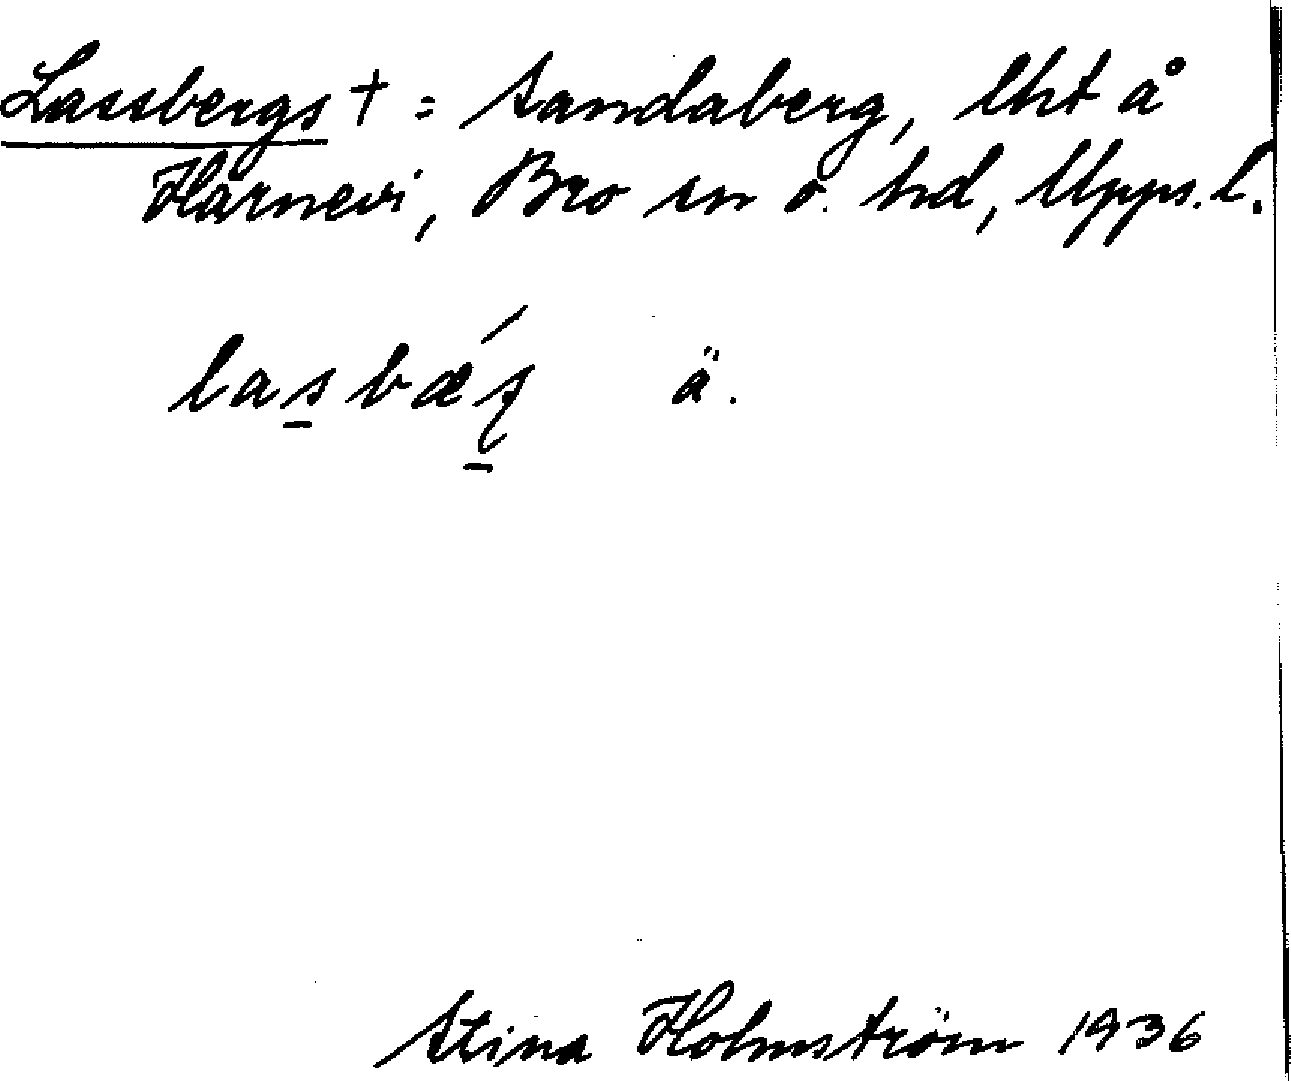 Lassbergs † = Sandaberg, lht å
Härnevi, Bro sn o. hd, Upps. l.
lasbæʂ́ ä.
Stina Holmström 1936